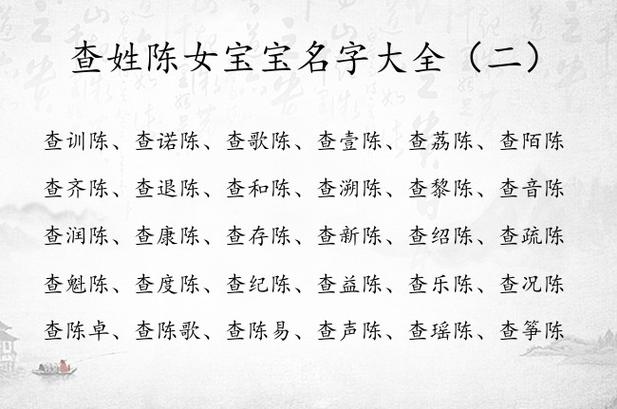 查姓陈女宝宝名字大全（二）
查训陈、查诺陈、查歌陈、查壹陈、查荔陈、查陌陈
查齐陈、查退陈、查和陈、查溯陈、查黎陈、查音陈
查润陈、查康陈、查存陈、查新陈、查绍陈、查疏陈
查魁陈、查度陈、查纪陈、查益陈、查乐陈、查况陈
查陈卓、查陈歌、查陈易、查声陈、查瑶陈、查筝陈